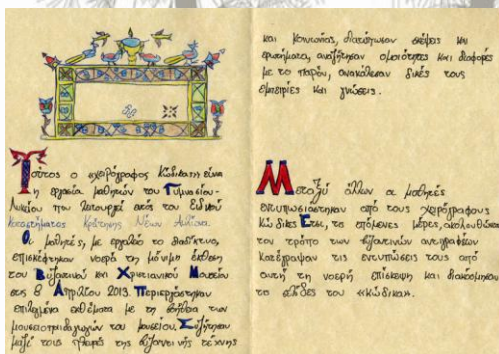 Τούτος ο «χειρόγραφος Κώδικας» είναι
η εργασία μαθητών του Γυμνασίου-
Λυκείου που λειτουργεί εντός του Ειδικού
Καταστήματος Κράτησης Νέων Αυλώνα.
Οι μαθητές, με εργαλείο το διαδίκτυο,
επισκέφτηκαν νοερά τη μόνιμη έκθεση
του Βυζαντινού και Χριστιανικού Μουσείου
στις 8 Απριλίου 2013. Περιεργάστηκαν
επιλεγμένα εκθέματα με τη βοήθεια των
μουσειοπαιδαγωγών του μουσείου. Συζήτησαν
μαζί τους πλευρές της βυζαντινής τέχνης
και κοινωνίας, διατύπωσαν σκέψεις και
ερωτήματα, αναζήτησαν ομοιότητες και διαφορές
με το παρόν, ανακάλεσαν δικές τους
εμπειρίες και γνώσεις.
Μεταξύ άλλων οι μαθητές
εντυπωσιάστηκαν από τους χειρόγραφους
Κώδικες. Έτσι, τις επόμενες μέρες, ακολουθώντας
τον τρόπο των βυζαντινών αντιγραφέων
κατέγραψαν τις εντυπώσεις τους από
αυτή τη νοερή επίσκεψη και διακόσμησαν
το «Κώδικα».